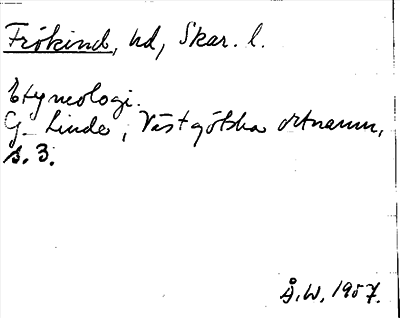 Frökind, hd, Skar. l.
Etymologi.
G. Linde, Västgötska ortnamn,
s. 3.
Å. W. 1957.